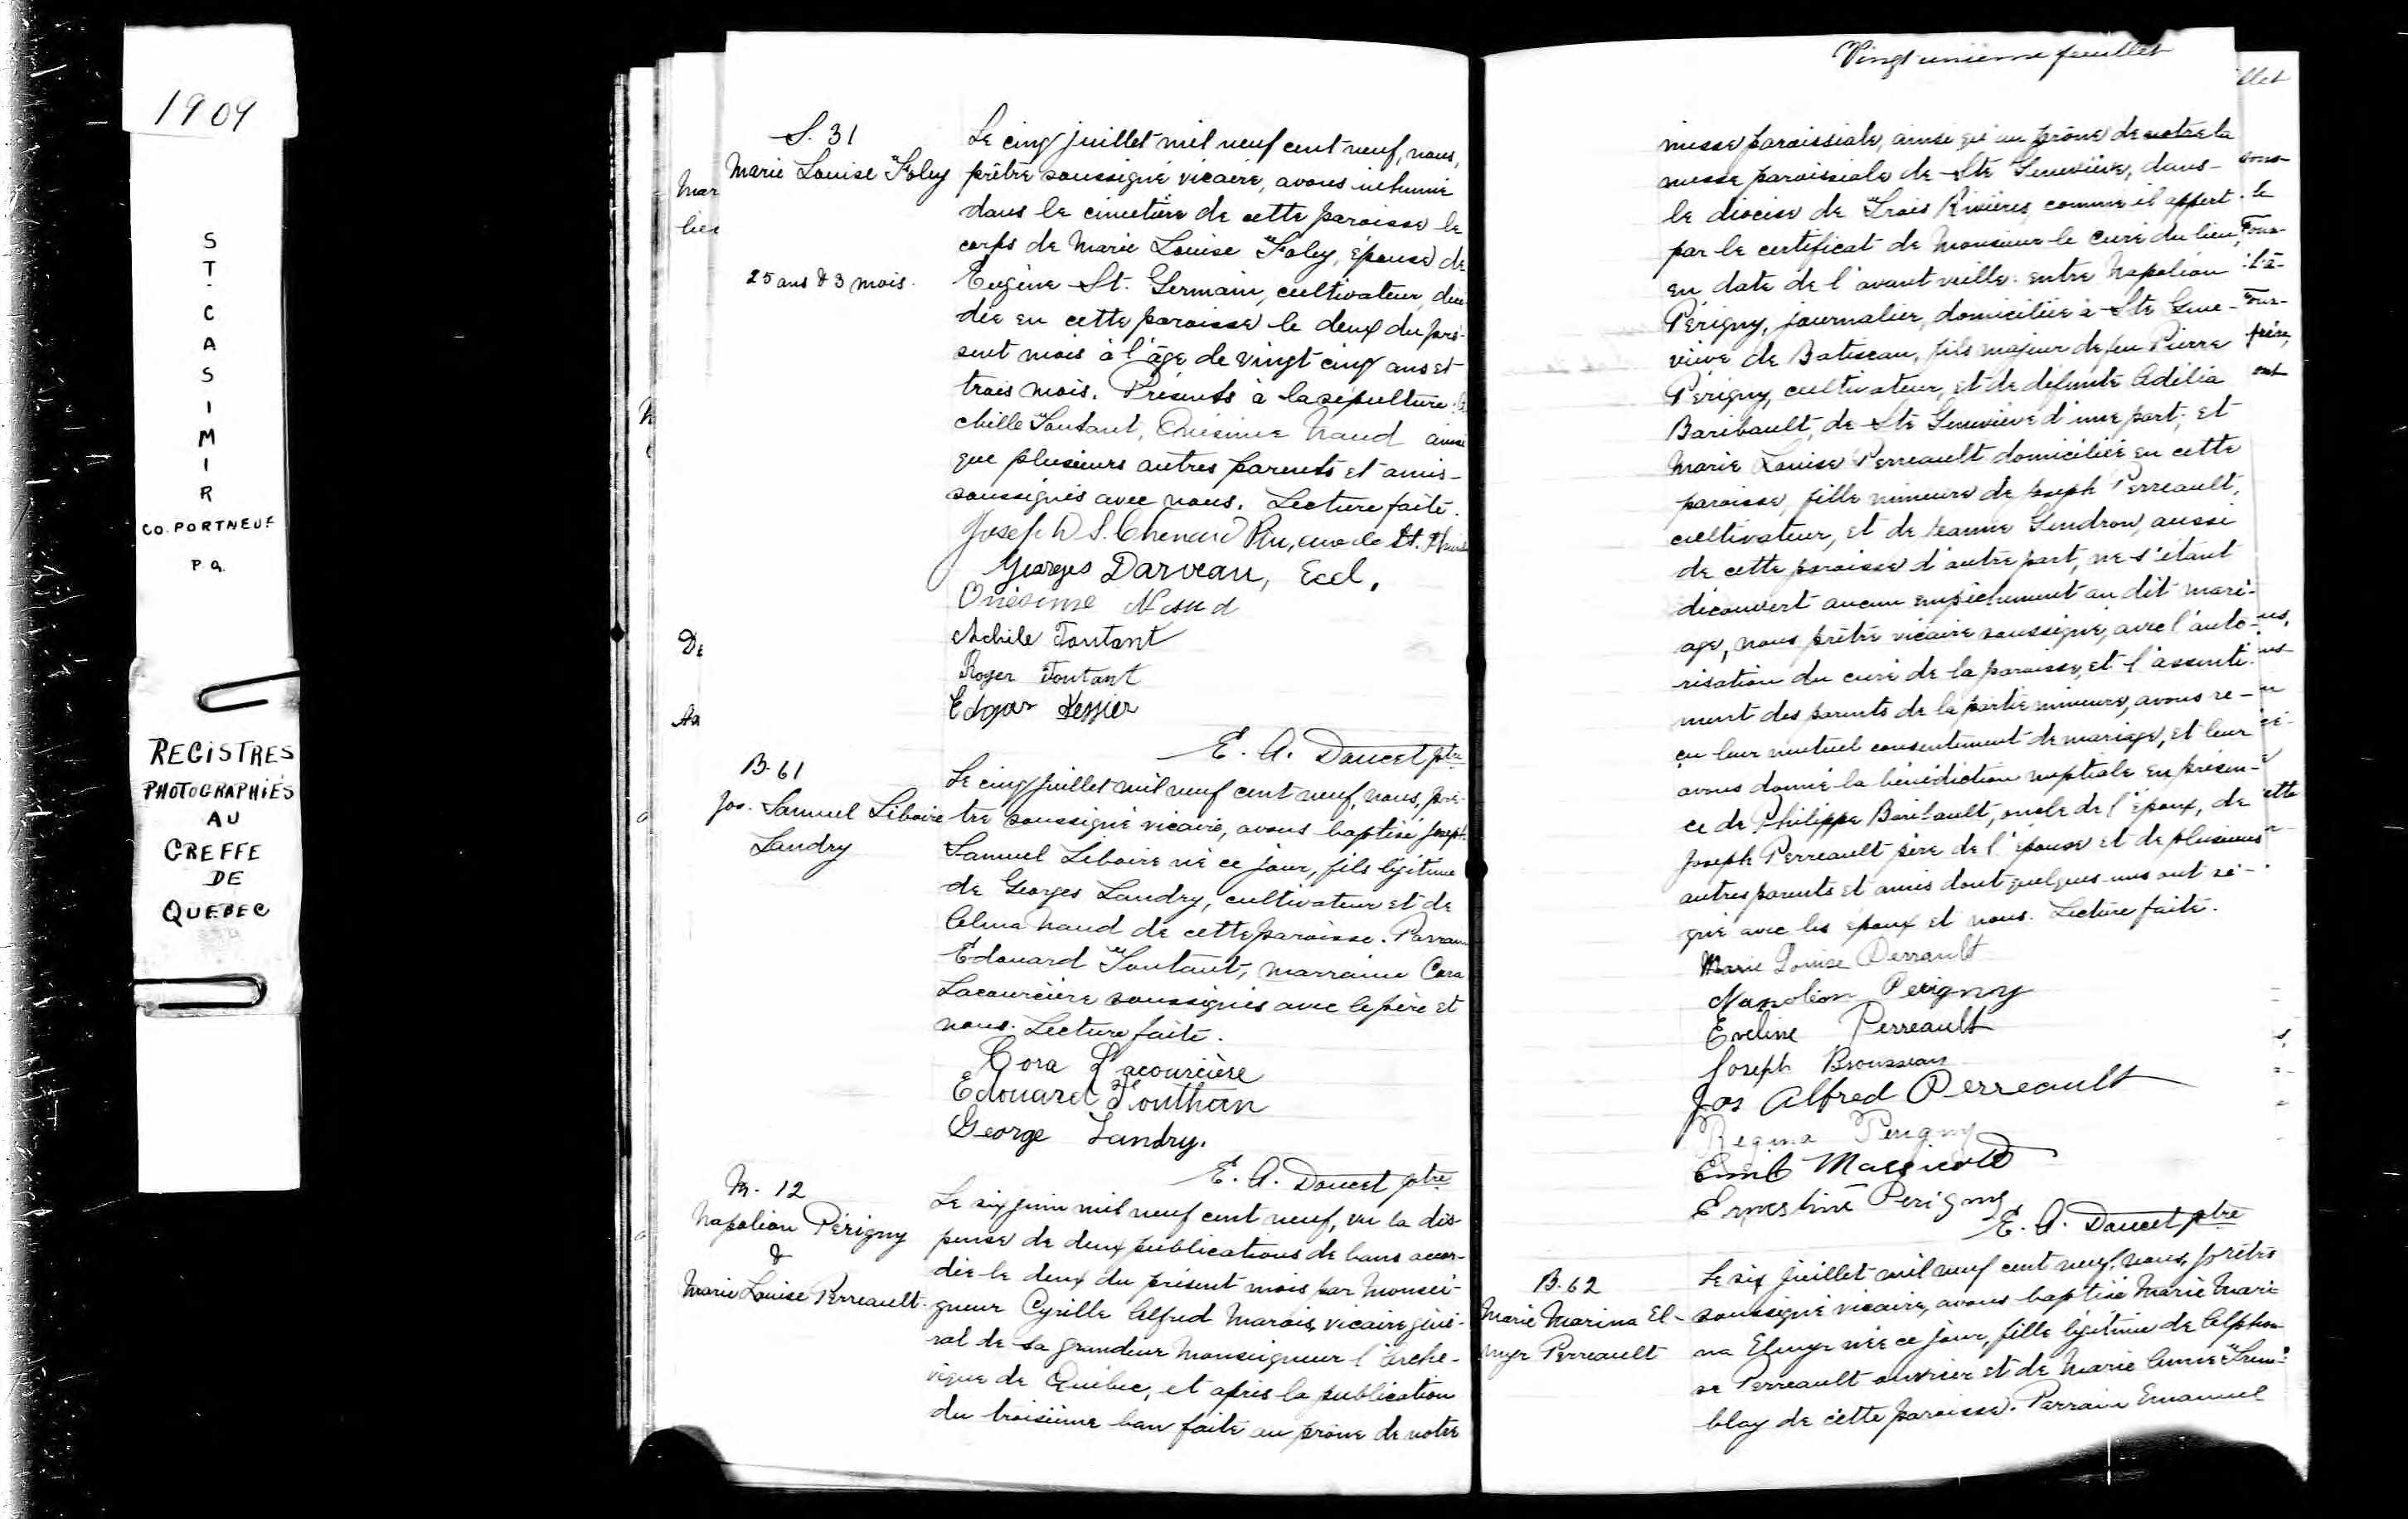 1909
ST. CASIMIR
CO. PORTNEUF
P.Q.
REGISTRES
PHOTOGRAPHIÉS
AU
GREFFE
DE
QUEBEC
S. 31
Marie Louise Foley
25 ans & 3 mois.
Le cinq juillet mil neuf cent neuf, nous,
prêtre soussigné vicaire, avons inhumé
dans le cimetière de cette paroisse le
corps de Marie Louise Foley, épouse de
Eugène St. Germain, cultivateur, décé-
dée en cette paroisse le deux du pré-
sent mois à l'âge de vingt cinq ans et
trois mois. Présents à la sépulture:
chille Toutant, Onésime Naud ainsi
que plusieurs autres parents et amis
soussignés avec nous. Lecture faite.
Joseph D S. Chenard Ptr, curé de St.
Georges Darveau, Eccl.
Onésime Naud
Achile Toutant
Roger Toutant
Edgar Tessier
E. A. Doucet ptre
B. 61
Jos. Samuel Liboire
Landry
Le cinq juillet mil neuf cent neuf, nous, prê-
tre soussigné vicaire, avons baptisé Joseph
Samuel Liboire né ce jour, fils légitime
de Georges Landry, cultivateur et de
Alma Naud de cette paroisse. Parrain
Edouard Toutant, marraine Cora
Lacourcière soussignés avec le père et
nous. Lecture faite.
Cora Lacourcière
Edouard Touthan
George Landry.
E. A. Doucet ptre
M. 12
Napoléon Périgny
&
Marie Louise Perreault.
Le six juin mil neuf cent neuf, vu la dis-
pense de deux publications de bans accor-
dée le deux du présent mois par Monsei-
gneur Cyrille Alfred Marois, vicaire géné-
ral de sa grandeur Monseigneur l'Arche-
vêque de Québec, et après la publication
du troisième ban faite au prône de notre
Vingt unième feuillet
messe paroissiale, ainsi qu'au prône de notre la
messe paroissiale de Ste Geneviève, dans
le diocèse de Trois Rivières, comme il appert
par le certificat de Monsieur le curé du lieu,
en date de l'avant veille: entre Napoléon
Périgny, journalier, domiciliée à Ste Gene-
viève de Batiscan, fils majeur de feu Pierre
Périgny, cultivateur, et de défunte Adélia
Baribault, de Ste Geneviève d'une part; et
Marie Louise Perreault domiciliée en cette
paroisse, fille mineure de Joseph Perreault,
cultivateur, et de Jeanne Gendron, aussi
de cette paroisse d'autre part, ne s'étant
découvert aucun empêchement au dit mari-
age, nous prêtre vicaire soussigné, avec l'auto-
risation du curé de la paroisse, et l'assenti-
ment des parents de la partie mineure, avons re-
çu leur mutuel consentement de mariage, et leur
avons donné la bénédiction nuptiale en présen-
ce de Philippe Baribault, oncle de l'époux, de
Joseph Perreault père de l'épouse et de plusieurs
autres parents et amis dont quelques-uns ont si-
gné avec les époux et nous. Lecture faite.
Marie Louise Perrault
Napoléon Perigny
Eveline Perreault
Joseph Brousseau
Jos Alfred Perreault
Regina Perigny
Emil Massicotte
Ernestine Perigny
E. A. Doucet ptre
B. 62
Marie Marina El-
myr Perreault
Le six juillet mil neuf cent neuf, nous, prêtre
soussigné vicaire, avons baptisé Marie Mari
na Elmyr née ce jour, fille légitime de Alphon
se Perreault ouvrier et de Marie Anne Trem-
blay de cette paroisse. Parrain Emanuel